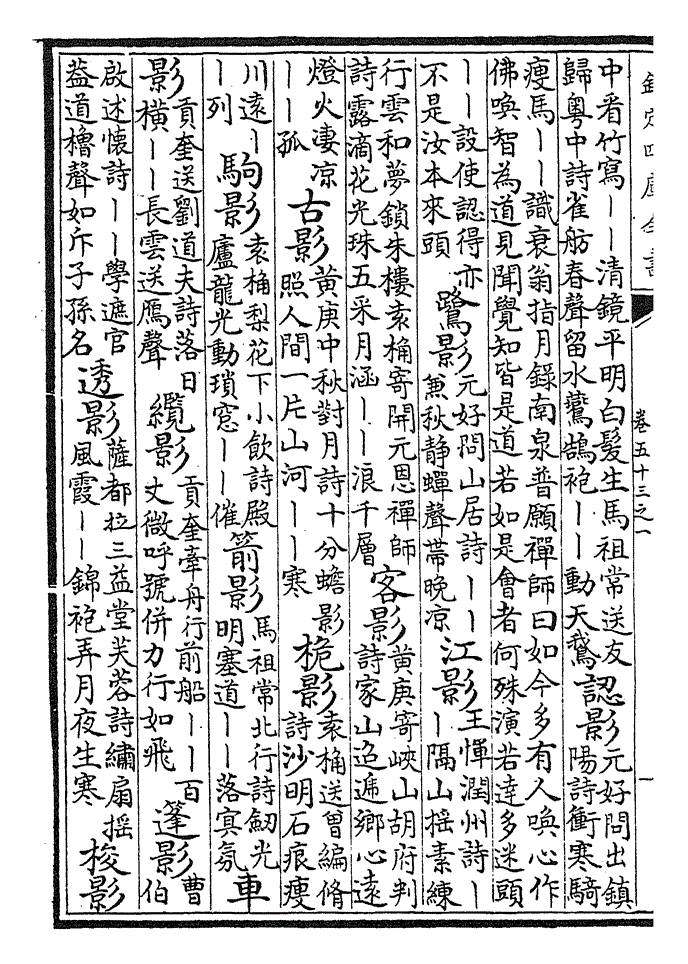 欽定四庫全書
卷五十三之一
中看竹寫——清鏡平明白髮生馬祖常送友
歸粤中詩雀舫春聲留水鸞鵠袍——動天鵝
認影
元好問出鎮
陽詩衝寒騎
瘦馬——識衰翁指月錄南泉普願禪師曰如今多有人喚心作
佛喚智為道見聞覺知皆是道若如是會者何殊演若達多迷頭
——設使認得亦
不是汝本來頭
鷺影
元好問山居詩——
蒹秋静蟬聲帶晚凉
江影
王惲潤州詩—
—隔山摇素練
行雲和夢鎖朱樓袁桷寄開元恩禪師
詩露滴花光珠五采月涵——浪千層
客影
黄庚寄峽山胡府判
詩家山迢遞鄉心遠
燈火凄凉
——孤
古影
黄庚中秋對月詩十分蟾影
照人間一片山河——寒
桅影
袁桷送曾編脩
詩沙明石痕瘦
川遠—
—列
駒影
袁桷梨花下小飲詩殿
廬龍光動瑣窓——催
箭影
馬祖常北行詩劒光
明塞道——落㝠氛
車
影
貢奎送劉道夫詩落日
横——長雲送鴈聲
纜影
貢奎牽舟行前船——百
丈微呼號併力行如飛
篷影
曹
伯
啟述懷詩——學遮官
葢道櫓聲如斥子孫名
透影
薩都拉三益堂芙蓉詩繡扇摇
風霞——錦袍弄月夜生寒
梭影